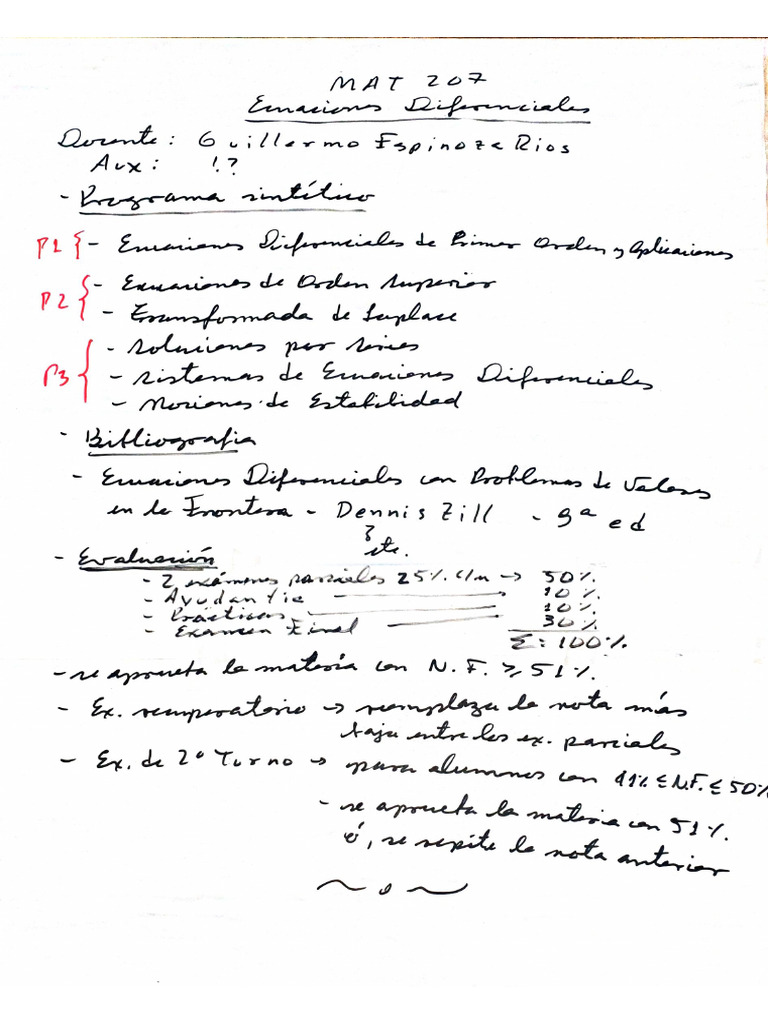 MAT 207
Ecuaciones Diferenciales
Docente: Guillermo Espinoza Rios
Aux: !?
- Programa sintético
P1 { - Ecuaciones Diferenciales de Primer Orden y Aplicaciones
P2 { - Ecuaciones de Orden Superior
- Transformada de Laplace
P3 { - Soluciones por Series
- Sistemas de Ecuaciones Diferenciales
- Nociones de Estabilidad
- Bibliografia
- Ecuaciones Diferenciales con Problemas de Valores
en la Frontera - Dennis Zill - 9ª ed
etc.
- Evaluación
- 2 exámenes parciales 25% c/u → 50%
- Ayudantia → 10%
- Prácticas → 10%
- Examen Final → 30%
Σ: 100%
- se aprueba la materia con N.F. ≥ 51%
- Ex. recuperatorio → reemplaza la nota más
baja entre los ex. parciales
- Ex. de 2º Turno → para alumnos con 41% ≤ N.F. ≤ 50%
- se aprueba la materia con 51%
ó, se repite la nota anterior